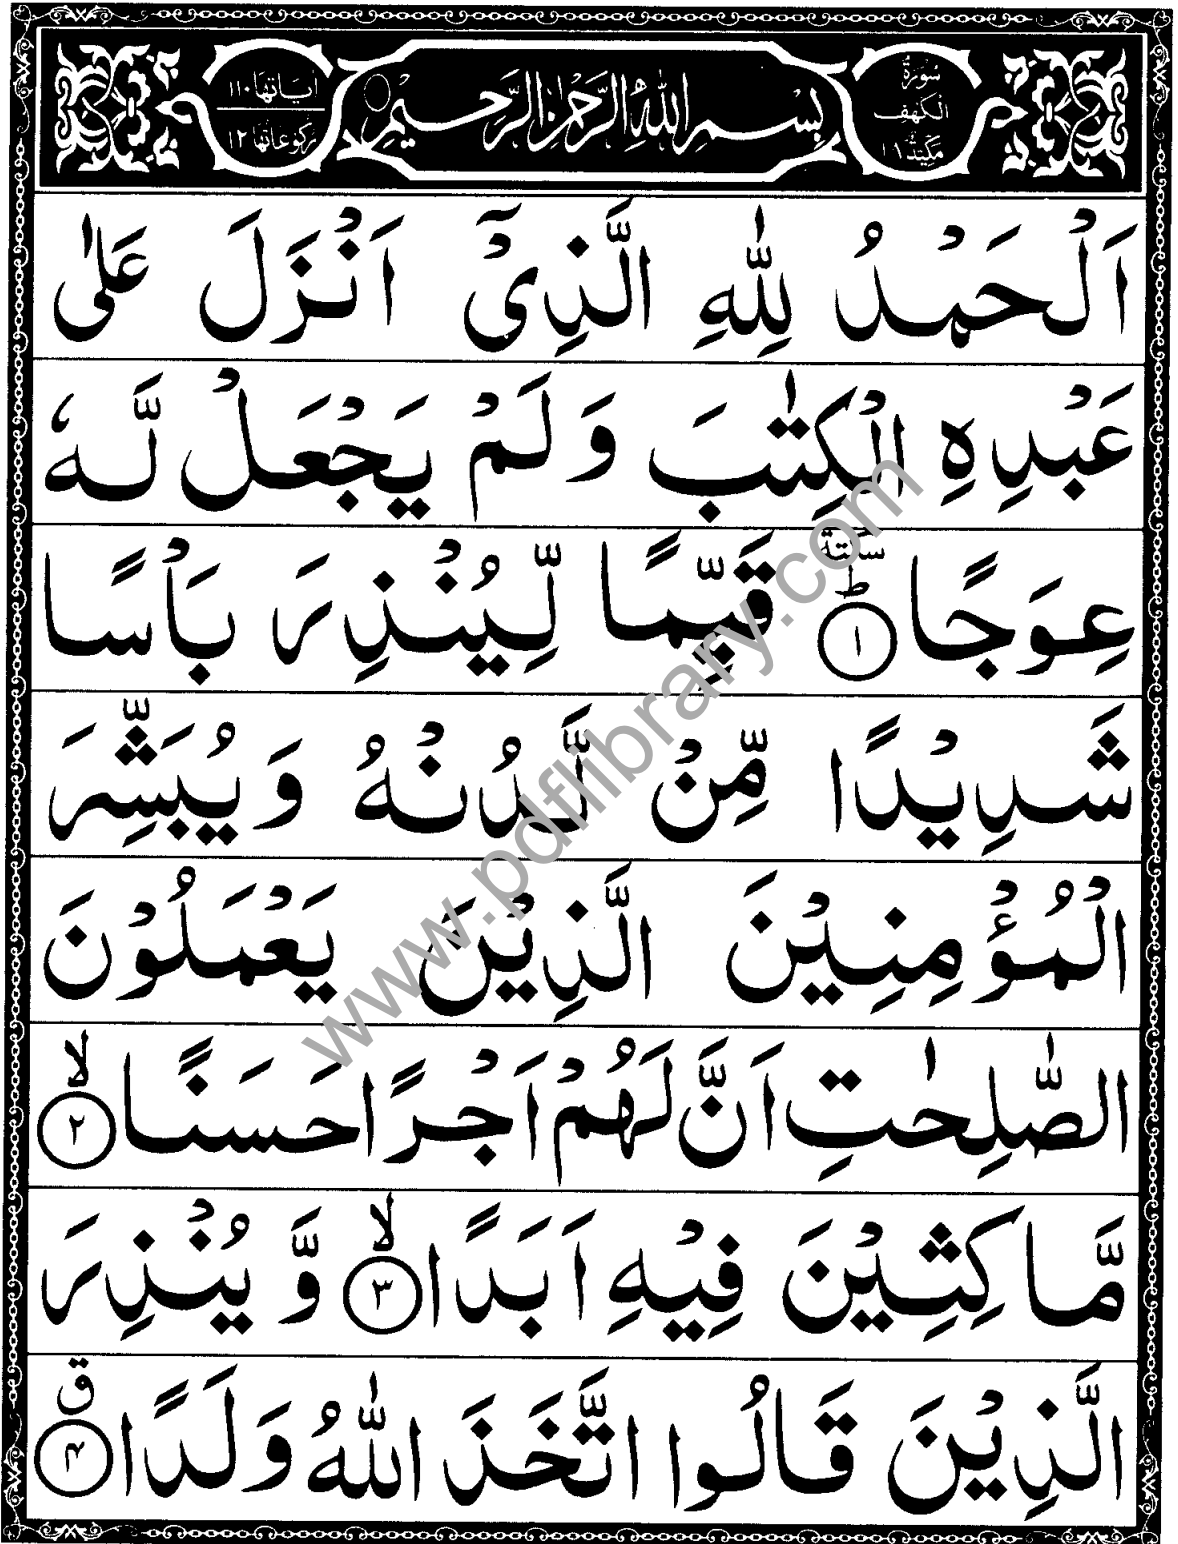 سُوْرَةُ
الْكَهْفِ
مَكِّيَّةٌ
بِسْمِ اللّٰهِ الرَّحْمٰنِ الرَّحِيْمِ
اٰيَاتُهَا ١١٠
رُكُوْعَاتُهَا ١٢
اَلْحَمْدُ لِلّٰهِ الَّذِىْٓ اَنْزَلَ عَلٰى
عَبْدِهِ الْكِتٰبَ وَلَمْ يَجْعَلْ لَّهٗ
عِوَجًا ؕ سكتة ١ قَيِّمًا لِّيُنْذِرَ بَاْسًا
شَدِيْدًا مِّنْ لَّدُنْهُ وَيُبَشِّرَ
الْمُؤْمِنِيْنَ الَّذِيْنَ يَعْمَلُوْنَ
الصّٰلِحٰتِ اَنَّ لَهُمْ اَجْرًا حَسَنًا لا ٢
مَّاكِثِيْنَ فِيْهِ اَبَدًا لا ٣ وَّيُنْذِرَ
الَّذِيْنَ قَالُوا اتَّخَذَ اللّٰهُ وَلَدًا ق ٤
www.pdflibrary.com